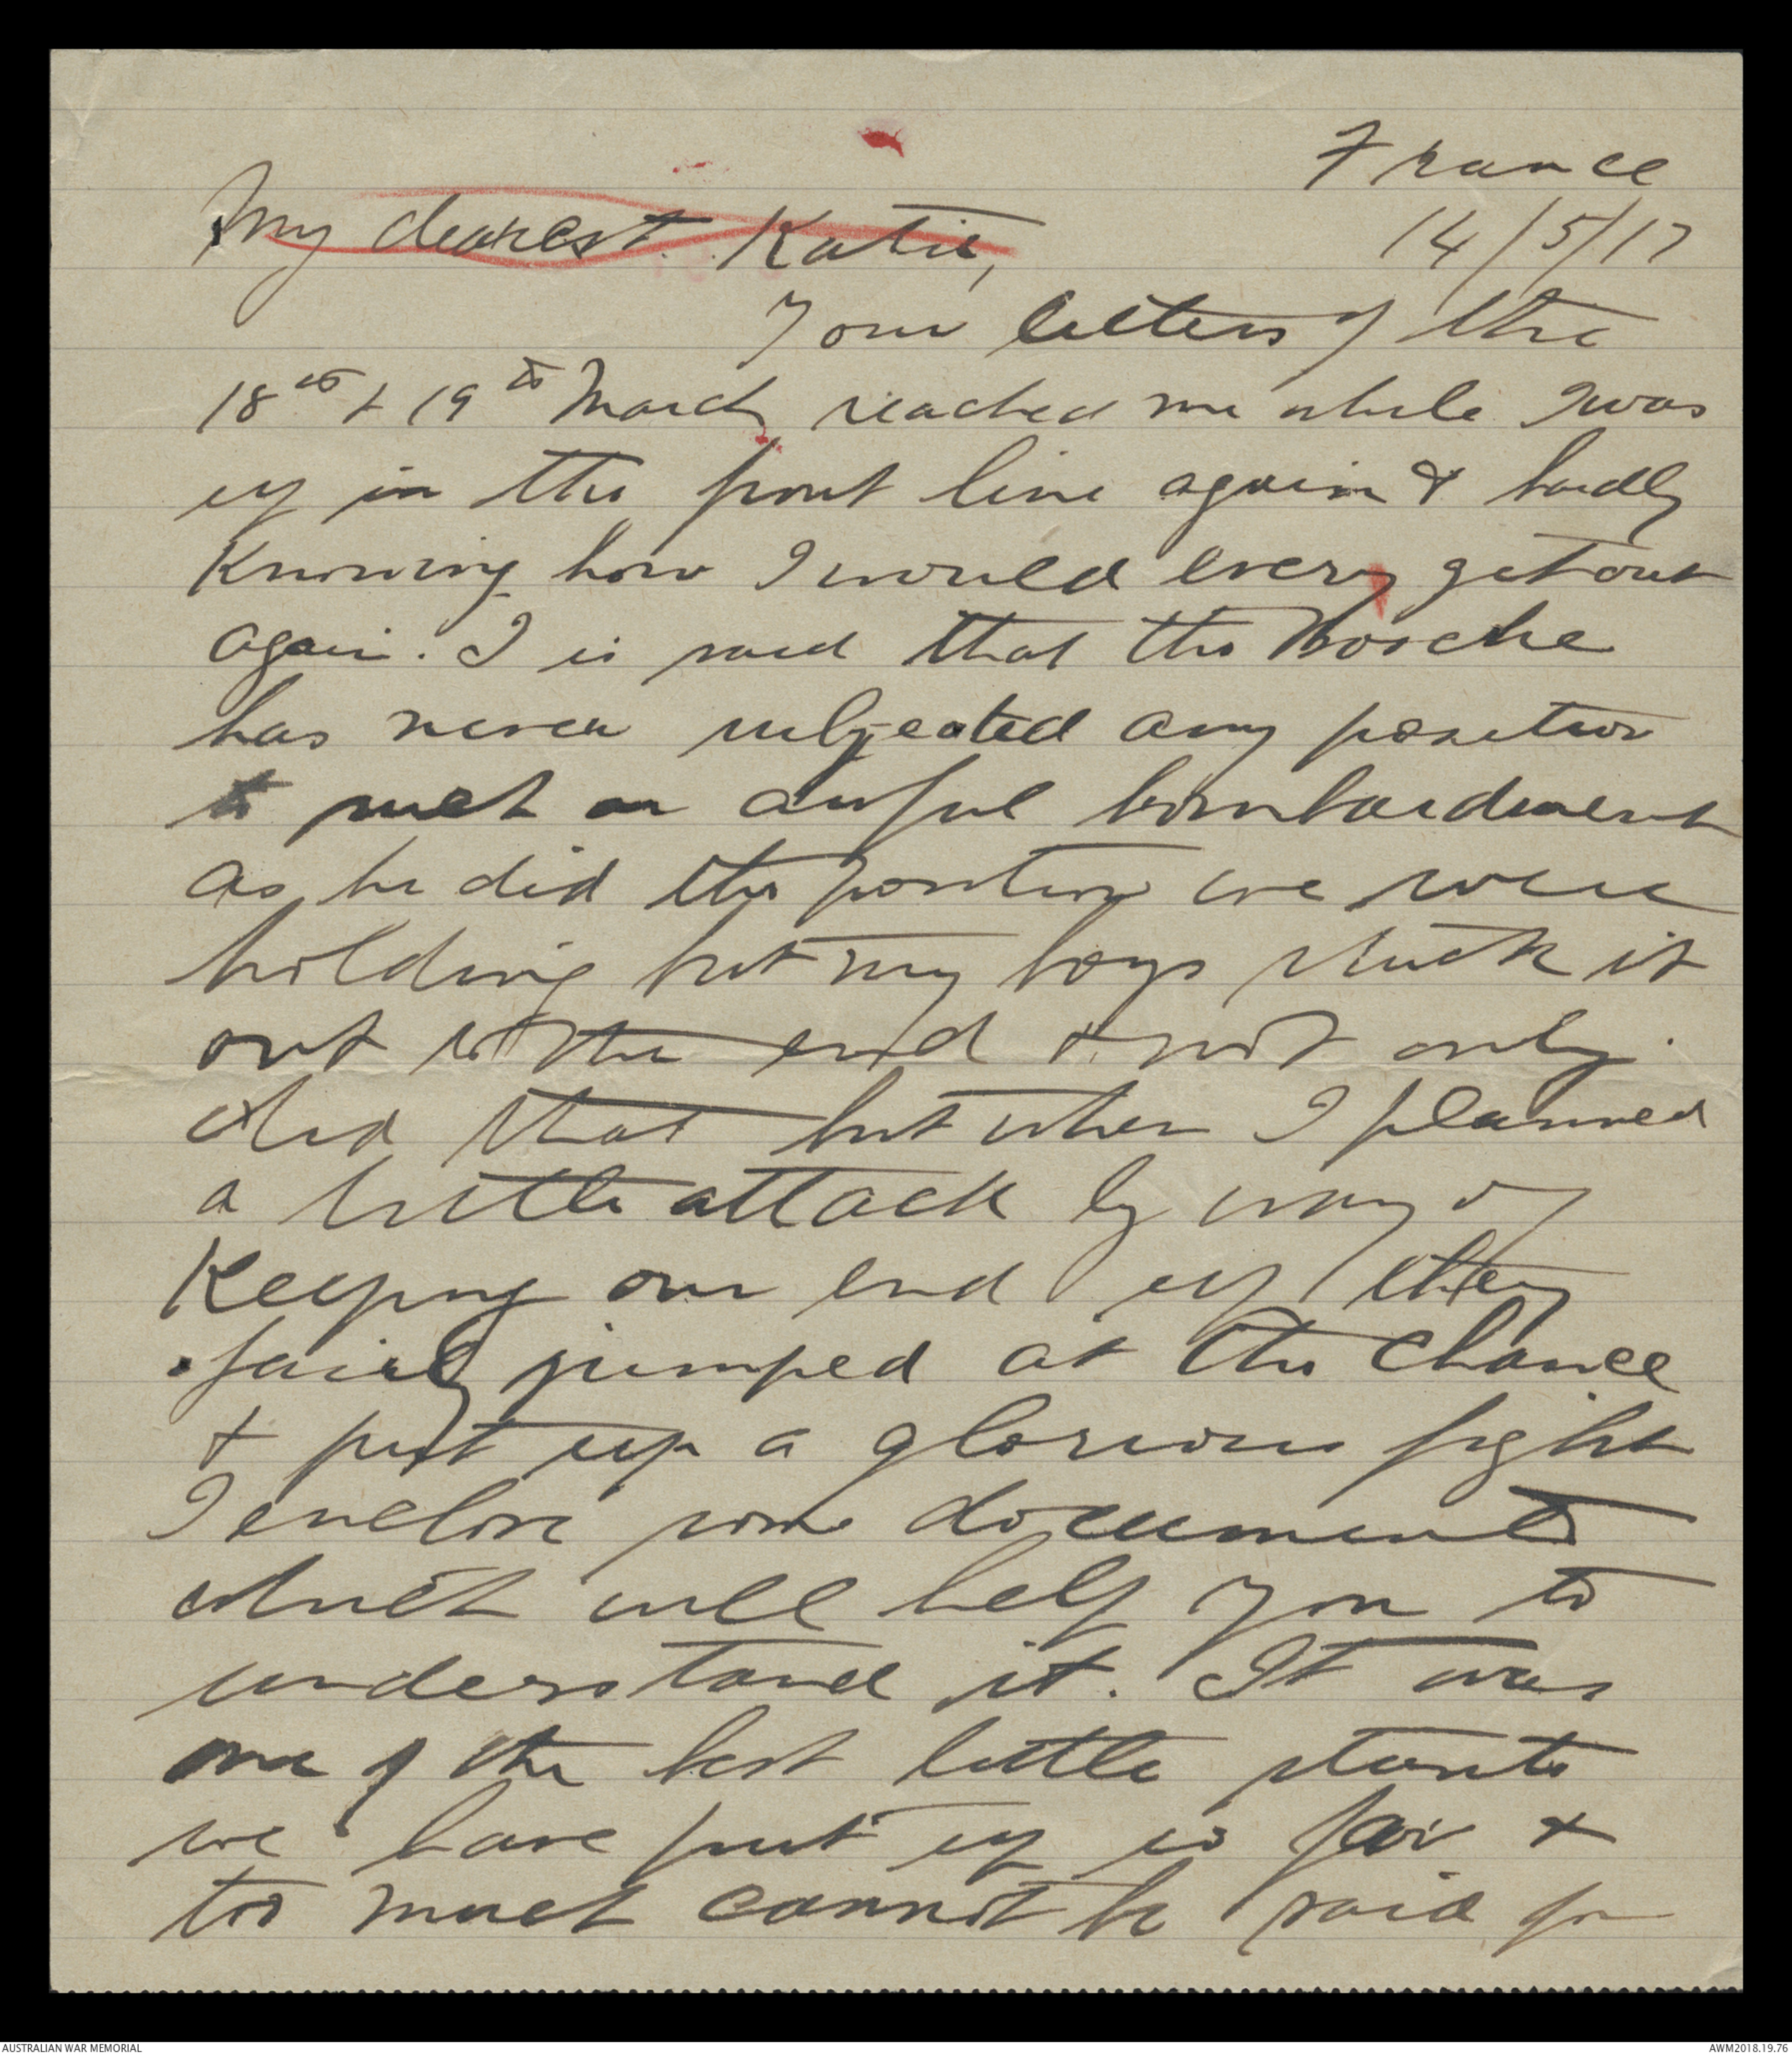 France
14/5/17
My dearest Katie,
Your letters of the
18th & 19th March reached me while I was
up in the front line again & hardly
knowing how I would every get out
again. I is said that the Bosche
has never subjected any position
to such an awful bombardment
as he did the position we were
holding but my boys stuck it
out to the end & not only
did that but when I planned
a little attack by way of
keeping our end up they
fairly jumped at the chance
& put up a glorious fight
I enclose some documents
which will help you to
understand it. It was
one of the best little stunts
we have put up so far &
too much cannot be said for
AUSTRALIAN WAR MEMORIAL
AWM2018.19.76